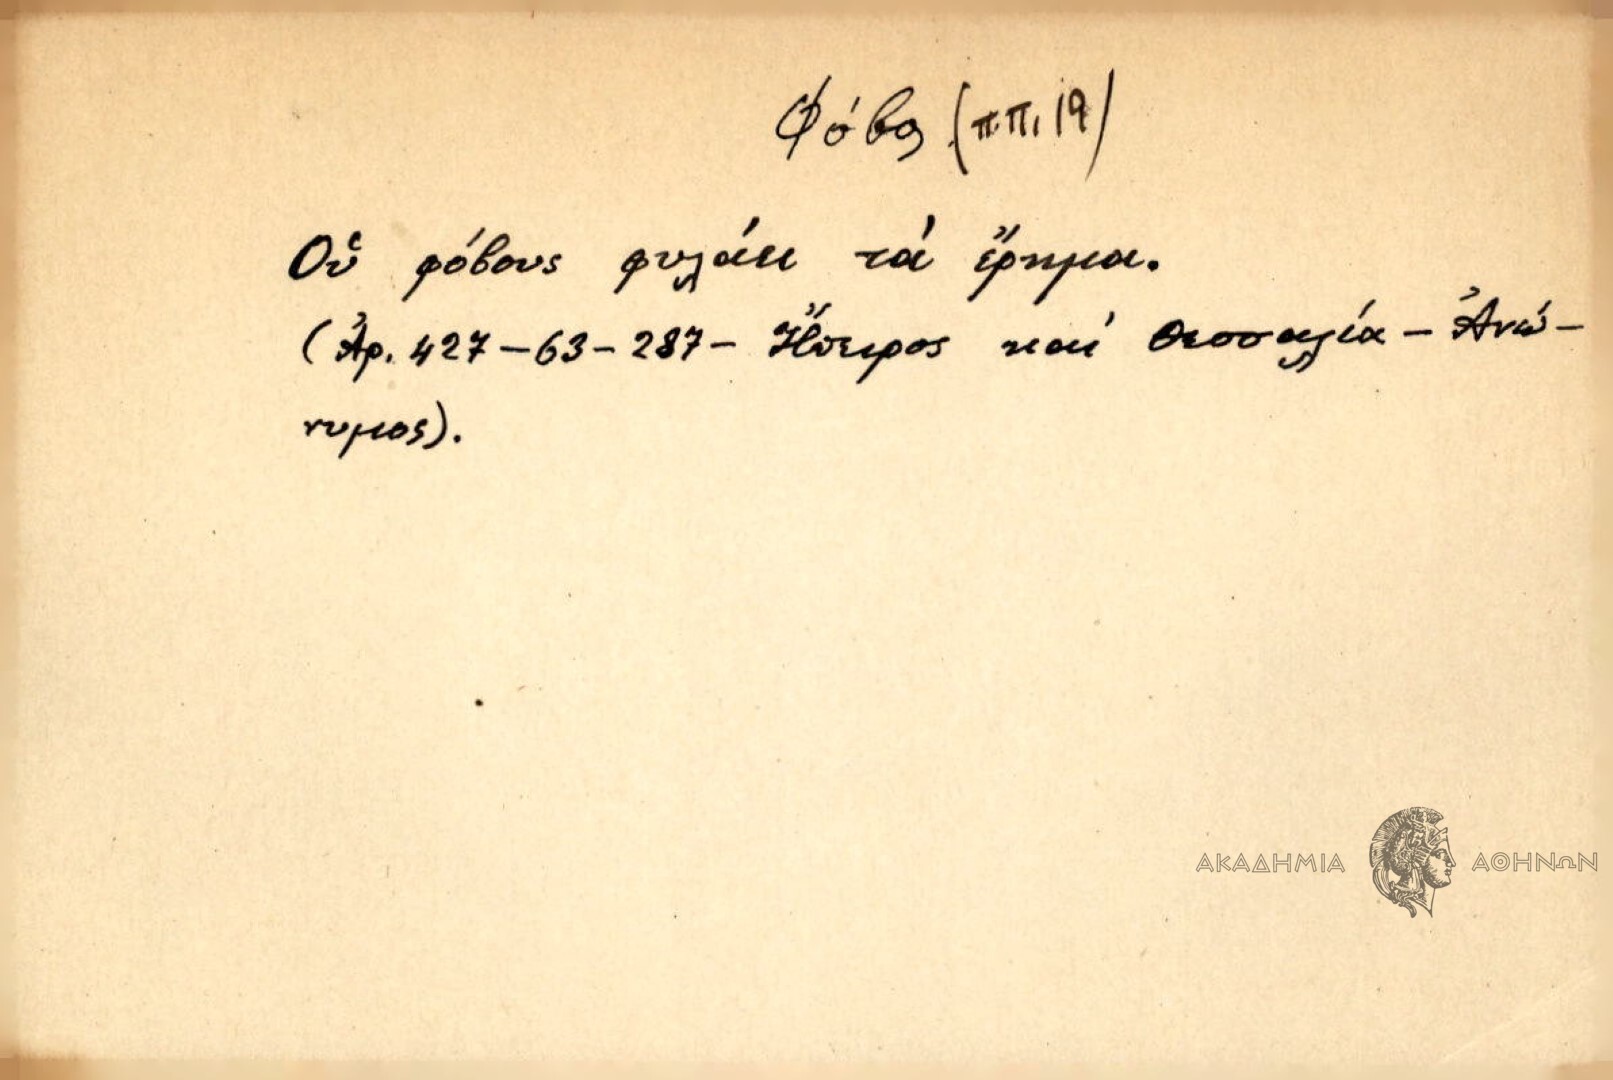 Φόβος (π.π. 19)
Οὑ φόβους φυλάει τά ἔρημα.
(Ἀρ. 427-63-287- Ἤπειρος καί Θεσσαλία - Ἀνώ-
νυμος).
ΑΚΑΔΗΜΙΑ ΑΘΗΝΩΝ